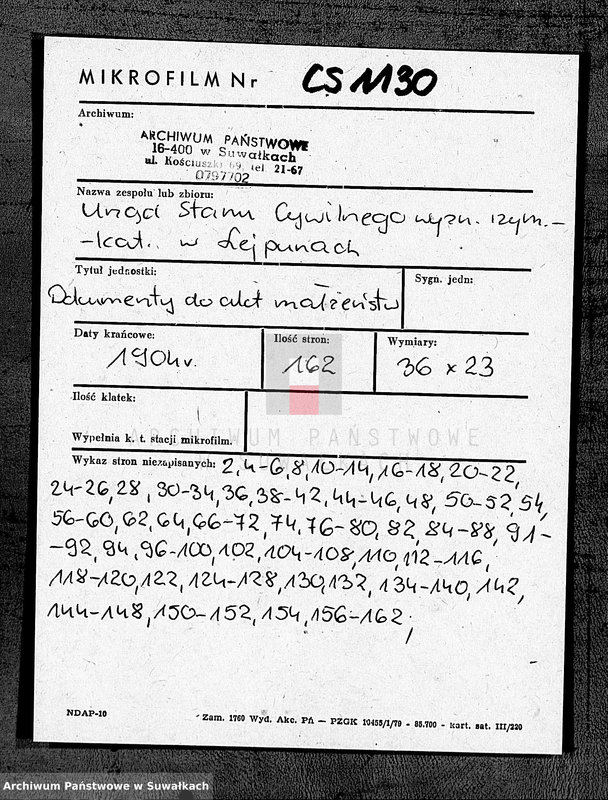 MIKROFILM Nr CS 1130
Archiwum:
ARCHIWUM PAŃSTWOWE
16-400 w Suwałkach
ul. Kościuszki 69, tel 21-67
0797702
Nazwa zespołu lub zbioru:
Urząd Stanu Cywilnego wyzn. rzym.-
-kat. w Lejpunach
Tytuł jednostki:
Sygn. jedn:
Dokumenty do akt małżeństw
Daty krańcowe:
Ilość stron:
Wymiary:
1904 r.
162
36 x 23
Ilość klatek:
Wypełnia k. t. stacji mikrofilm.
ARCHIWUM PAŃSTWOWE
Wykaz stron niezapisanych: 2,4-6,8,10-14,16-18,20-22,
24-26,28,30-34,36,38-42,44-46,48,50-52,54,
56-60,62,64,66-72,74,76-80,82,84-88,91-
-92,94,96-100,102,104-108,110,112-116,
118-120,122,124-128,130,132,134-140,142,
144-148,150-152,154,156-162,
NDAP-10
Zam. 1760 Wyd. Akc. Pń — PZGK 10455/1/79 - 85.700 - kart. sat. III/220
Archiwum Państwowe w Suwałkach